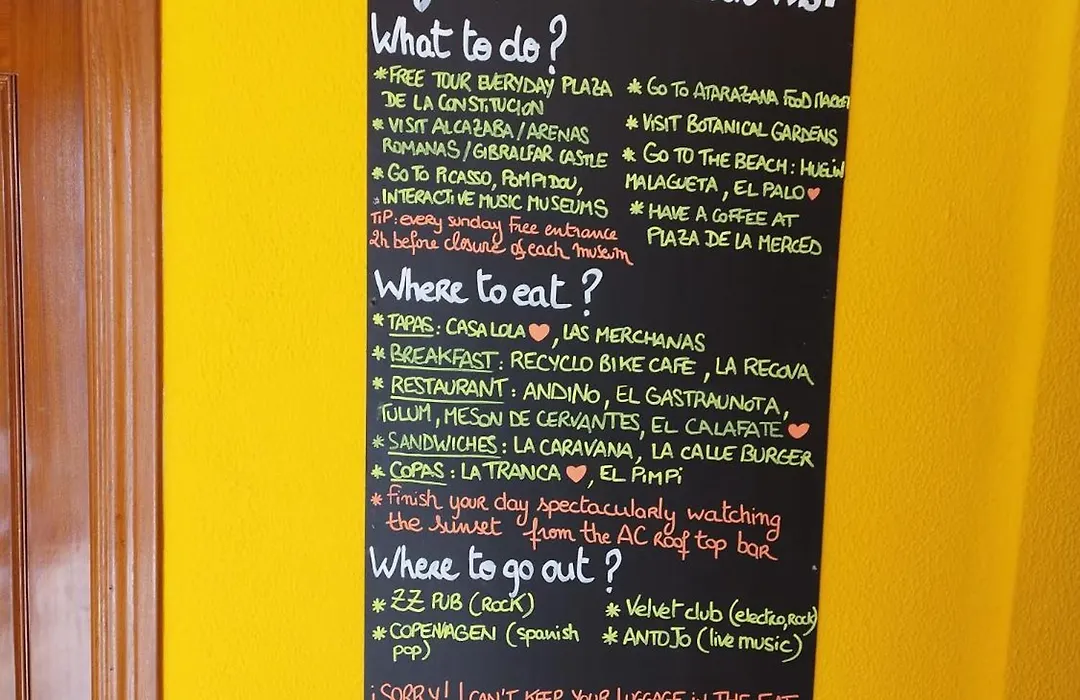 What to do?
*FREE TOUR EVERYDAY PLAZA
DE LA CONSTITUCION
*VISIT ALCAZABA/ARENAS
ROMANAS/GIBRALFAR CASTLE
*GO TO PICASSO, POMPIDOU,
INTERACTIVE MUSIC MUSEUMS
TIP: every sunday free entrance
2h before closure of each museum
* GO TO ATARAZANA FOOD MARKET
* VISIT BOTANICAL GARDENS
* GO TO THE BEACH: HUELIN
MALAGUETA, EL PALO
* HAVE A COFFEE AT
PLAZA DE LA MERCED
Where to eat?
*TAPAS: CASA LOLA, LAS MERCHANAS
*BREAKFAST: RECYCLO BIKE CAFE, LA RECOVA
* RESTAURANT: ANDINO, EL GASTRAUNOTA,
TULUM, MESON DE CERVANTES, EL CALAFATE
*SANDWICHES: LA CARAVANA, LA CALLE BURGER
* COPAS: LA TRANCA, EL PIMPI
* finish your day spectacularly watching
the sunset from the AC Roof top bar
Where to go out?
* ZZ PUB (ROCK)
* COPENHAGEN (spanish
pop)
* Velvet club (electro, Rock)
* ANTOJO (live music)
¡SORRY! I CAN'T KEEP YOUR LUGGAGE IN THE